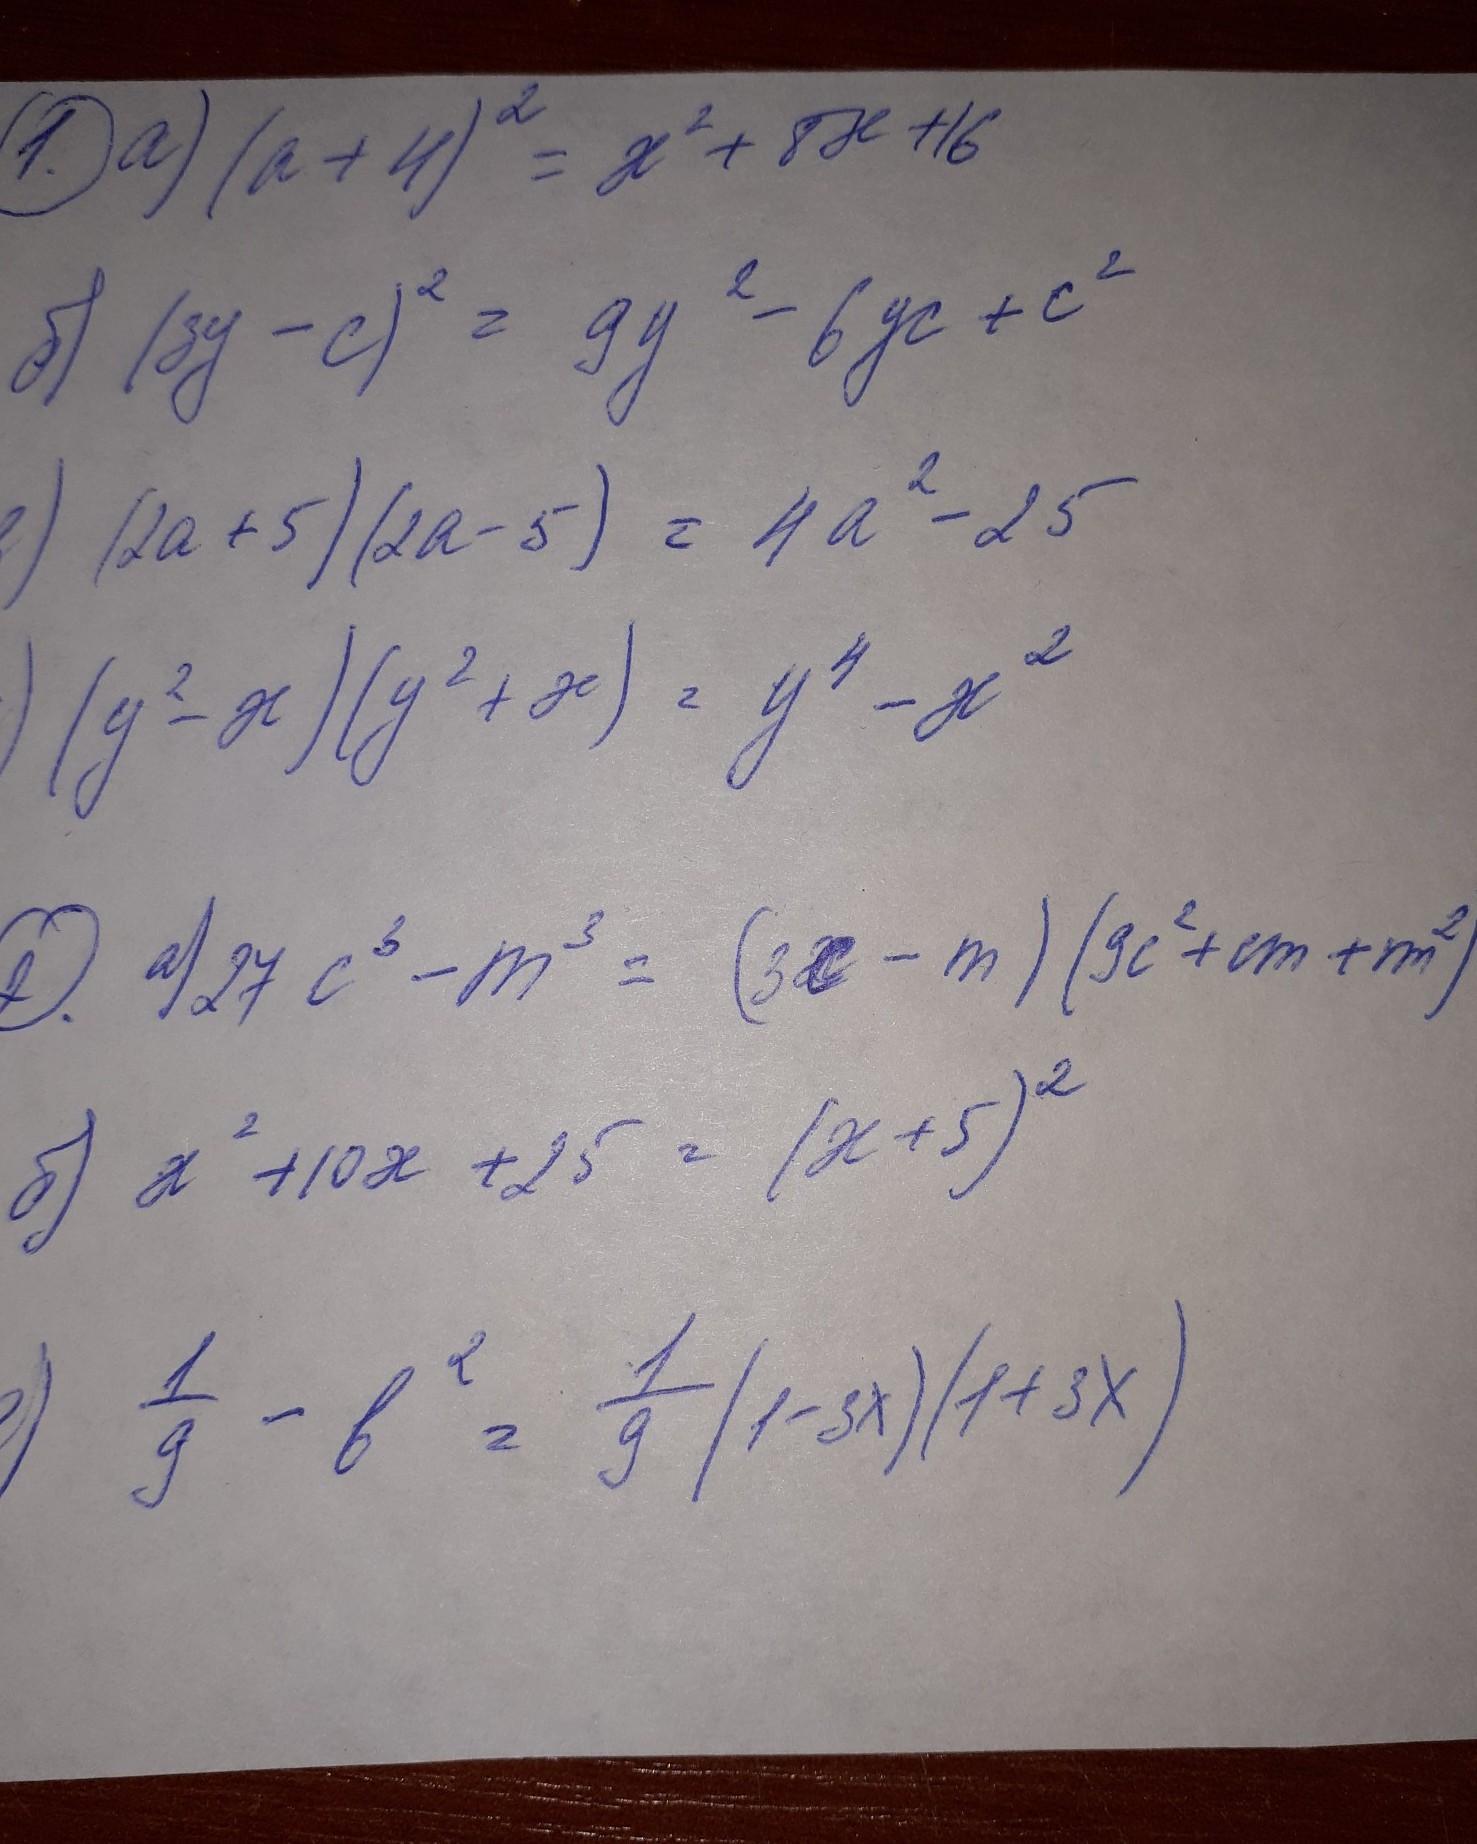 1. а) (a + 4)² = x² + 8x + 16
б) (3y - c)² = 9y² - 6yc + c²
) (2a + 5)(2a - 5) = 4a² - 25
) (y² - x)(y² + x) = y⁴ - x²
2. а) 27c³ - m³ = (3c - m)(9c² + cm + m²)
б) x² + 10x + 25 = (x + 5)²
) 1/9 - b² = 1/9 (1 - 3x)(1 + 3x)